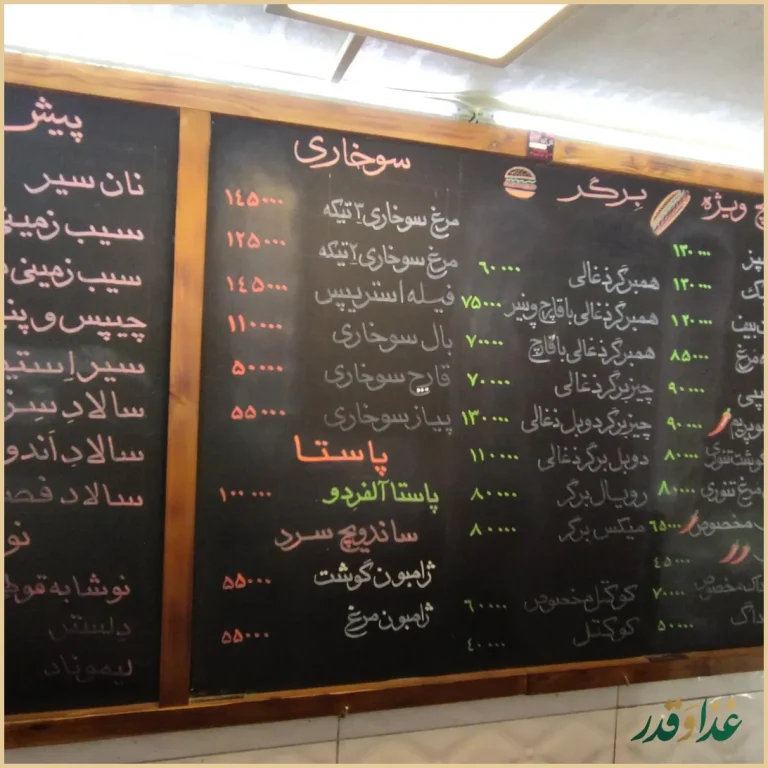 چ ویژه
۱۳۰۰۰۰
۱۲۰۰۰۰
۱۲۰۰۰۰
مرغ ۸۵۰۰۰
۹۰۰۰۰
۹۰۰۰۰
گوشت تنوری ۸۰۰۰۰
مرغ تنوری ۸۰۰۰۰
مخصوص ۶۵۰۰۰
۴۵۰۰۰
داگ مخصوص ۷۰۰۰۰
داگ ۵۰۰۰۰
برگر
همبرگر ذغالی ۶۰۰۰۰
همبرگر ذغالی با قارچ و پنیر ۷۵۰۰۰
همبرگر ذغالی با قارچ ۷۰۰۰۰
چیزبرگر ذغالی ۷۰۰۰۰
چیزبرگر دوبل ذغالی ۱۳۰۰۰۰
دوبل برگر ذغالی ۱۱۰۰۰۰
رویال برگر ۸۰۰۰۰
میکس برگر ۸۰۰۰۰
کوکتل مخصوص ۶۰۰۰۰
کوکتل ۴۰۰۰۰
سوخاری
مرغ سوخاری ۳ تیکه ۱۴۵۰۰۰
مرغ سوخاری ۲ تیکه ۱۲۵۰۰۰
فیله استریپس ۱۴۵۰۰۰
بال سوخاری ۱۱۰۰۰۰
قارچ سوخاری ۵۰۰۰۰
پیاز سوخاری ۵۵۰۰۰
پاستا
پاستا آلفردو ۱۰۰۰۰۰
ساندویچ سرد
ژامبون گوشت ۵۵۰۰۰
ژامبون مرغ ۵۵۰۰۰
پیش
نان سیر
سیب زمینی
سیب زمینی
چیپس و پنیر
سیر استیک
سالاد سزار
سالاد اندو
سالاد فصل
نو
نوشابه قوطی
دلستر
لیموناد
غذا و قدر